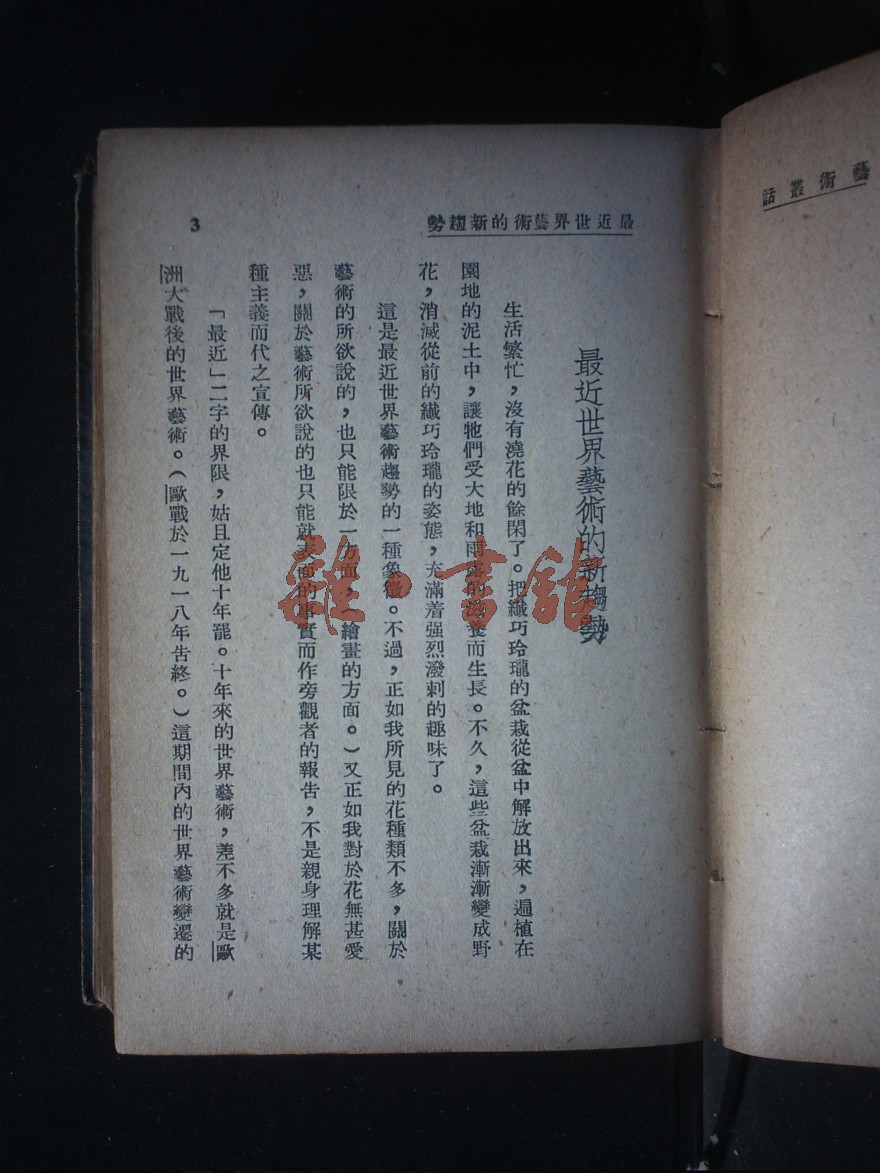 藝術叢話
最近世界藝術的新趨勢
3
最近世界藝術的新趨勢
生活繁忙，沒有澆花的餘閑了。把纖巧玲瓏的盆栽從盆中解放出來，遍植在
園地的泥土中，讓牠們受大地和雨露的滋養而生長。不久，這些盆栽漸漸變成野
花，消滅從前的纖巧玲瓏的姿態，充滿着强烈潑刺的趣味了。
這是最近世界藝術趨勢的一種象徵。不過，正如我所見的花種類不多，關於
藝術的所欲說的，也只能限於一方面，繪畫的方面。）又正如我對於花無甚愛
惡，關於藝術所欲說的也只能就表面的事實而作旁觀者的報告，不是親身理解某
種主義而代之宣傳。
「最近」二字的界限，姑且定他十年罷。十年來的世界藝術，差不多就是歐
洲大戰後的世界藝術。（歐戰於一九一八年告終。）這期間內的世界藝術變遷的
雜·書館